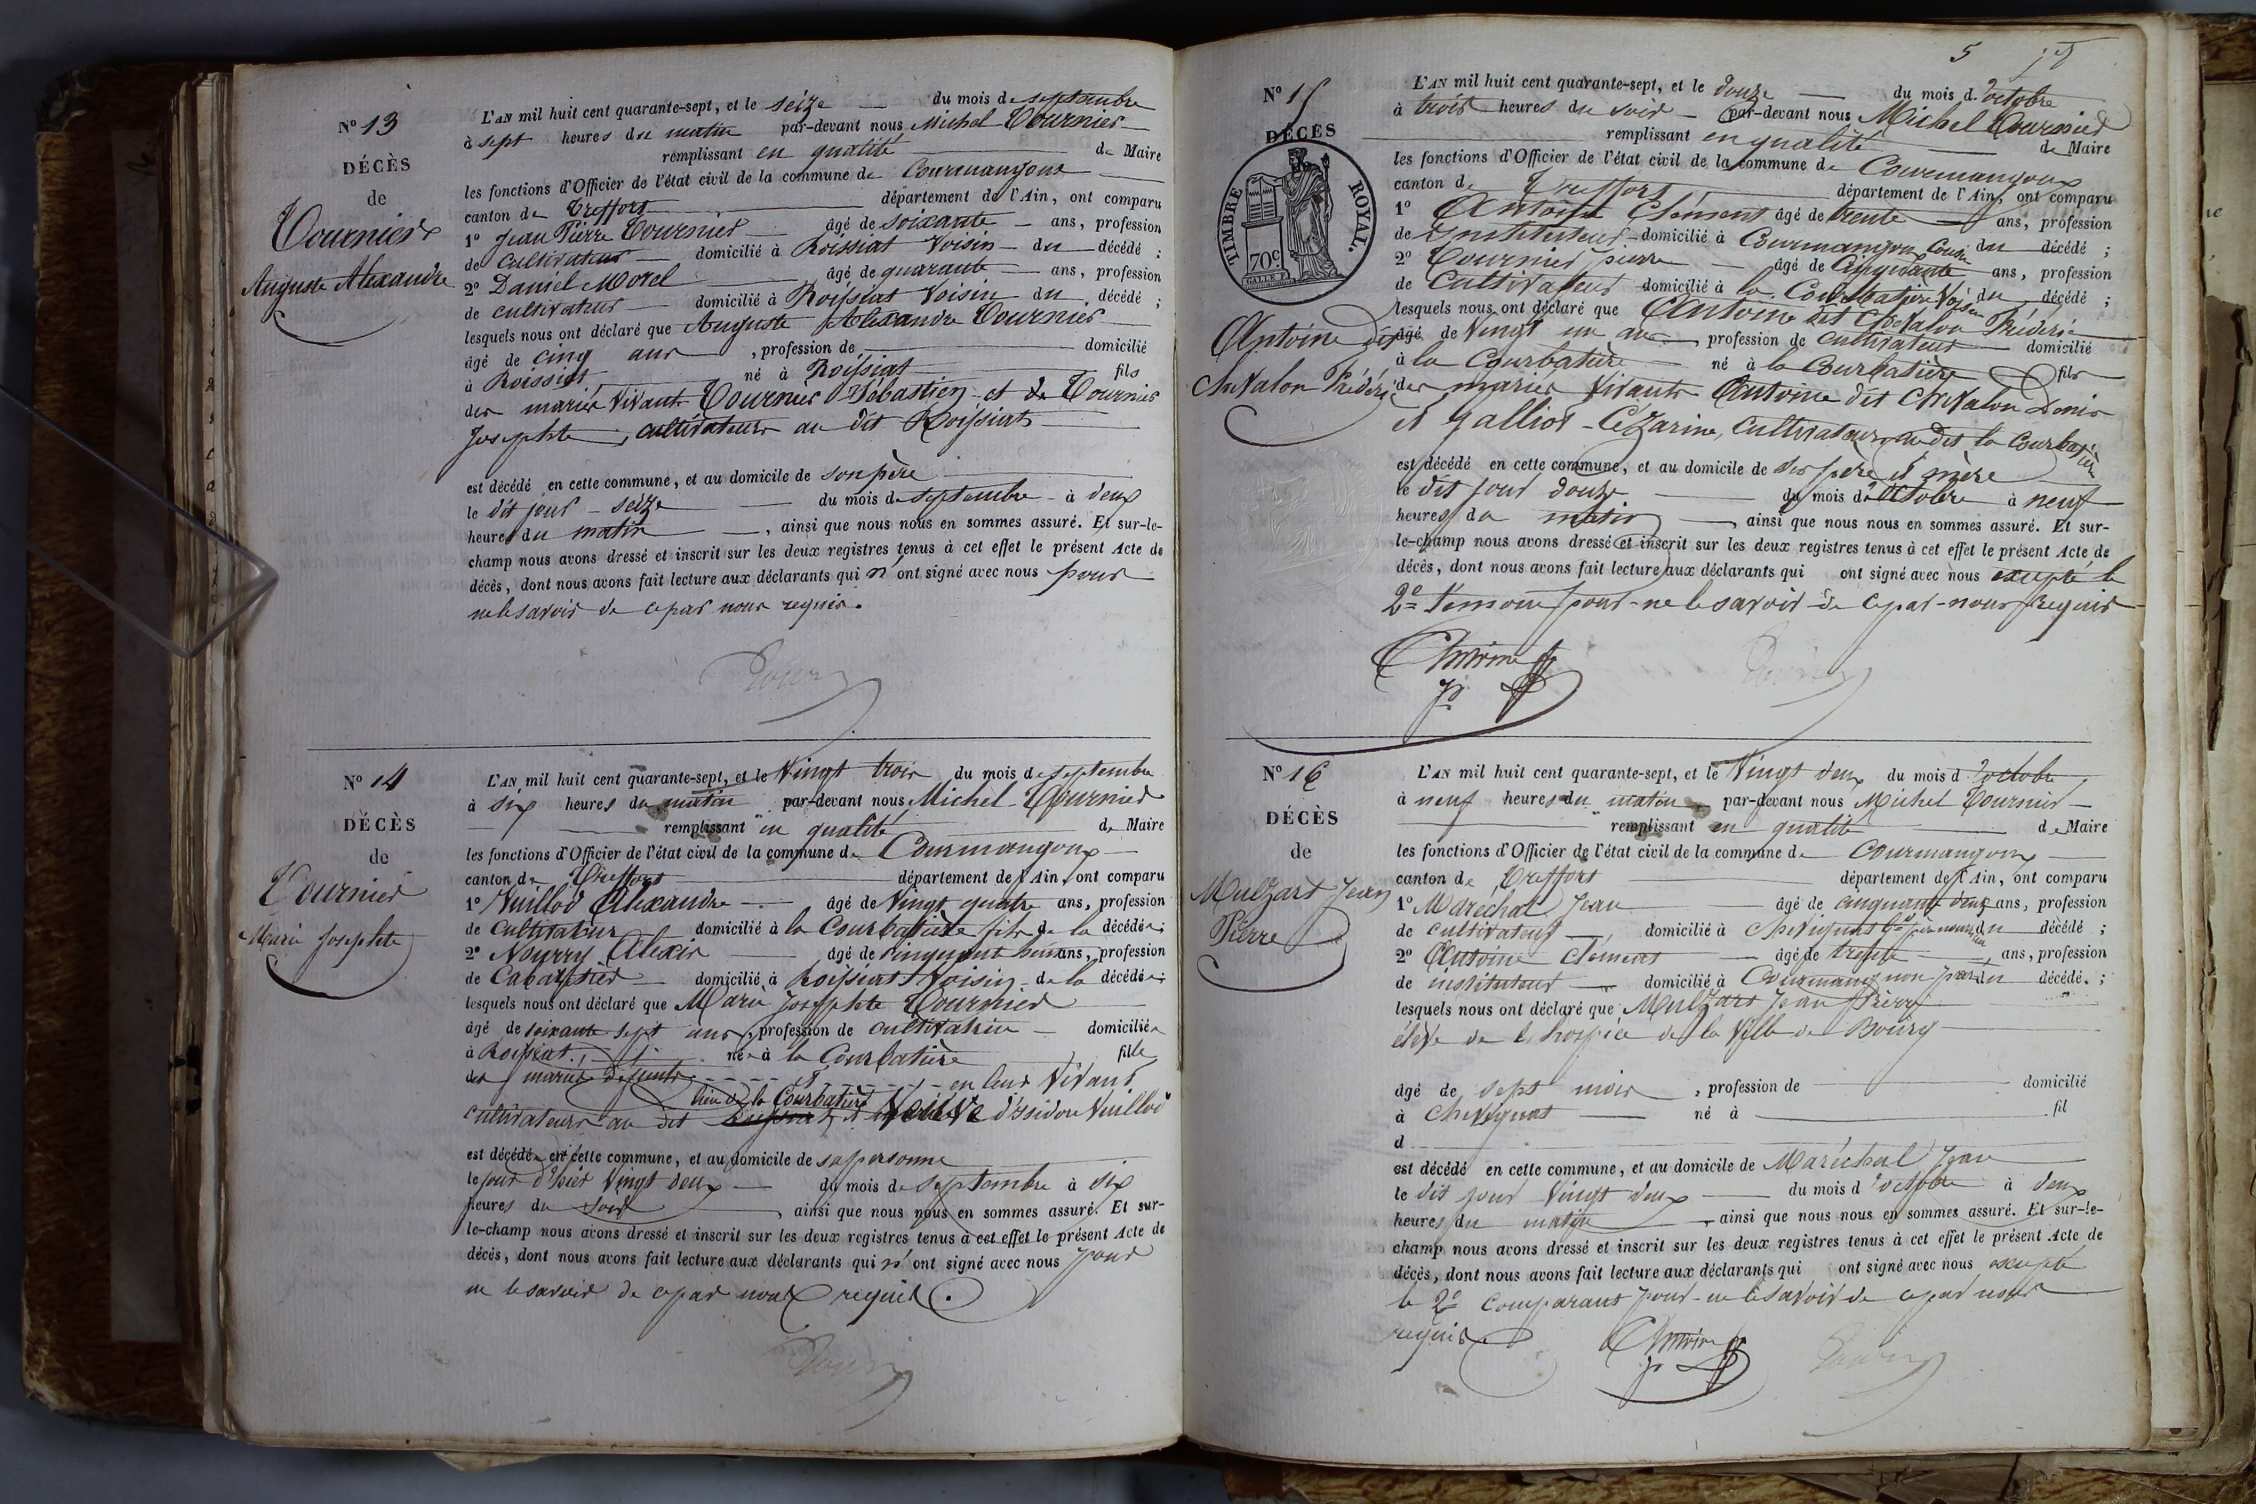 N° 13
DÉCÈS
de
Tournier
Auguste Alexandre
L'AN mil huit cent quarante-sept, et le seize du mois de septembre
à sept heures du matin par-devant nous Michel Tournier
remplissant en qualité de Maire
les fonctions d'Officier de l'état civil de la commune de Courmangoux
canton de Treffort département de l'Ain, ont comparu
1° Jean Pierre Tournier âgé de soixante ans, profession
de cultivateur domicilié à Roissiat voisin du décédé ;
2° Daniel Morel âgé de quarante ans, profession
de cultivateur domicilié à Roissiat voisin du décédé ;
lesquels nous ont déclaré que Auguste Alexandre Tournier
âgé de cinq ans, profession de domicilié
à Roissiat né à Roissiat fils
des mariés vivants Tournier Sébastien et de Tournier
Josephte, cultivateurs au dit Roissiat
est décédé en cette commune, et au domicile de son père
le dit jour seize du mois de septembre à deux
heures du matin, ainsi que nous nous en sommes assuré. Et sur-le-
champ nous avons dressé et inscrit sur les deux registres tenus à cet effet le présent Acte de
décès, dont nous avons fait lecture aux déclarants qui n'ont signé avec nous pour
ne le savoir de ce par nous requis.
N° 14
DÉCÈS
de
Tournier
Marie Josephte
L'AN mil huit cent quarante-sept, et le vingt trois du mois de septembre
à six heures du matin par-devant nous Michel Tournier
remplissant en qualité de Maire
les fonctions d'Officier de l'état civil de la commune de Courmangoux
canton de Treffort département de l'Ain, ont comparu
1° Vuillod Alexandre âgé de vingt quatre ans, profession
de cultivateur domicilié à la Courbatière fils de la décédée ;
2° Nourry Alexis âgé de cinquante ans, profession
de Cabaretier domicilié à Roissiat Voisin de la décédée ;
lesquels nous ont déclaré que Marie Josephte Tournier
âgé de soixante sept ans, profession de cultivatrice domiciliée
à Roissiat née à la Courbatière fille
des mariés défunts et en leur vivant
lieu de la Courbatière
cultivateurs au dit Roissiat et Veuve d'Isidore Vuillod
est décédée en cette commune, et au domicile de sa personne
le jour d'hier vingt deux du mois de septembre à six
heures du soir ainsi que nous nous en sommes assuré. Et sur-
le-champ nous avons dressé et inscrit sur les deux registres tenus à cet effet le présent Acte de
décès, dont nous avons fait lecture aux déclarants qui n'ont signé avec nous pour
ne le savoir de ce par nous requis.
5
N° 15
DÉCÈS
TIMBRE ROYAL.
70c
Antoine dit
Chevalon Frédéric
L'AN mil huit cent quarante-sept, et le douze du mois d'octobre
à trois heures du soir par-devant nous Michel Tournier
remplissant en qualité de Maire
les fonctions d'Officier de l'état civil de la commune de Courmangoux
canton de Treffort département de l'Ain, ont comparu
1° Antoine Clément âgé de trente ans, profession
de instituteur domicilié à Courmangoux Cousin du décédé ;
2° Tournier pierre âgé de Cinquante ans, profession
de Cultivateur domicilié à la Courbatière Voisin du décédé ;
lesquels nous ont déclaré que Antoine dit Chevalon Frédéric
âgé de vingt un ans, profession de cultivateur domicilié
à la Courbatière né à la Courbatière fils
des mariés vivants Antoine dit Chevalon Denis
et Galliot Cézarine, cultivateurs au dit la Courbatière
est décédé en cette commune, et au domicile de ses père et mère
le dit jour douze du mois d'octobre à neuf
heures du matin, ainsi que nous nous en sommes assuré. Et sur-
le-champ nous avons dressé et inscrit sur les deux registres tenus à cet effet le présent Acte de
décès, dont nous avons fait lecture aux déclarants qui ont signé avec nous excepté le
2e témoin pour ne le savoir de ce par nous requis
Antoine
N° 16
DÉCÈS
de
Mulzart Jean
Pierre
L'AN mil huit cent quarante-sept, et le vingt deux du mois d'octobre
à neuf heures du matin par-devant nous Michel Tournier
remplissant en qualité de Maire
les fonctions d'Officier de l'état civil de la commune de Courmangoux
canton de Treffort département de l'Ain, ont comparu
1° Maréchal Jean âgé de cinquante deux ans, profession
de cultivateur domicilié à Chevignat père nourricier du décédé ;
2° Antoine Clément âgé de trente ans, profession
de instituteur domicilié à Courmangoux non parent du décédé. ;
lesquels nous ont déclaré que Mulzart Jean Pierre
élève de l'hospice de la Ville de Bourg
âgé de sept mois, profession de domicilié
à Chevignat né à fil
d
est décédé en cette commune, et au domicile de Maréchal Jean
le dit jour vingt deux du mois d'octobre à deux
heures du matin, ainsi que nous nous en sommes assuré. Et sur-le-
champ nous avons dressé et inscrit sur les deux registres tenus à cet effet le présent Acte de
décès, dont nous avons fait lecture aux déclarants qui ont signé avec nous excepté
le 2e comparant pour ne le savoir de ce par nous
requis.
Antoine